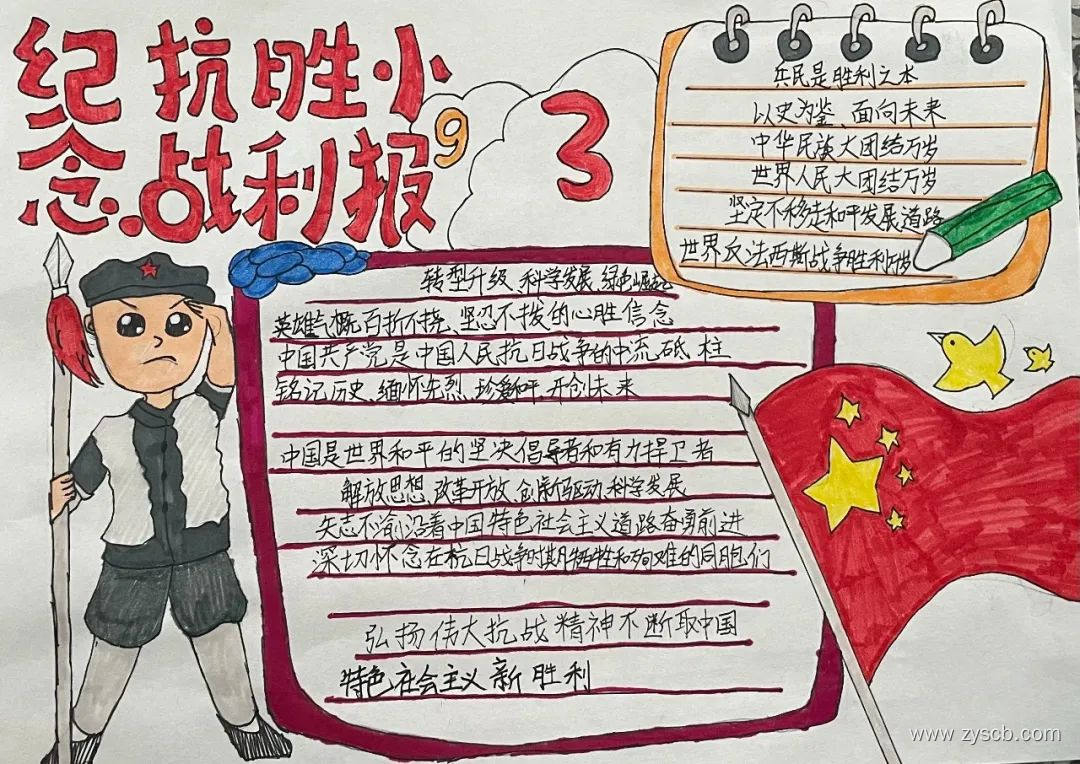 纪抗胜小
念战利报
9
3
兵民是胜利之本
以史为鉴、面向未来
中华民族大团结万岁
世界人民大团结万岁
坚定不移走和平发展道路
世界反法西斯战争胜利万岁
转型升级、科学发展、绿色崛起
英雄气概、百折不挠、坚忍不拔的心胜信念
中国共产党是中国人民抗日战争的中流砥柱
铭记历史、缅怀先烈、珍爱和平、开创未来
中国是世界和平的坚决倡导者和有力捍卫者
解放思想、改革开放、创新驱动、科学发展
矢志不渝沿着中国特色社会主义道路奋勇前进
深切怀念在抗日战争时期牺牲和殉难的同胞们
弘扬伟大抗战精神不断取中国
特色社会主义新胜利
www.zyscb.com